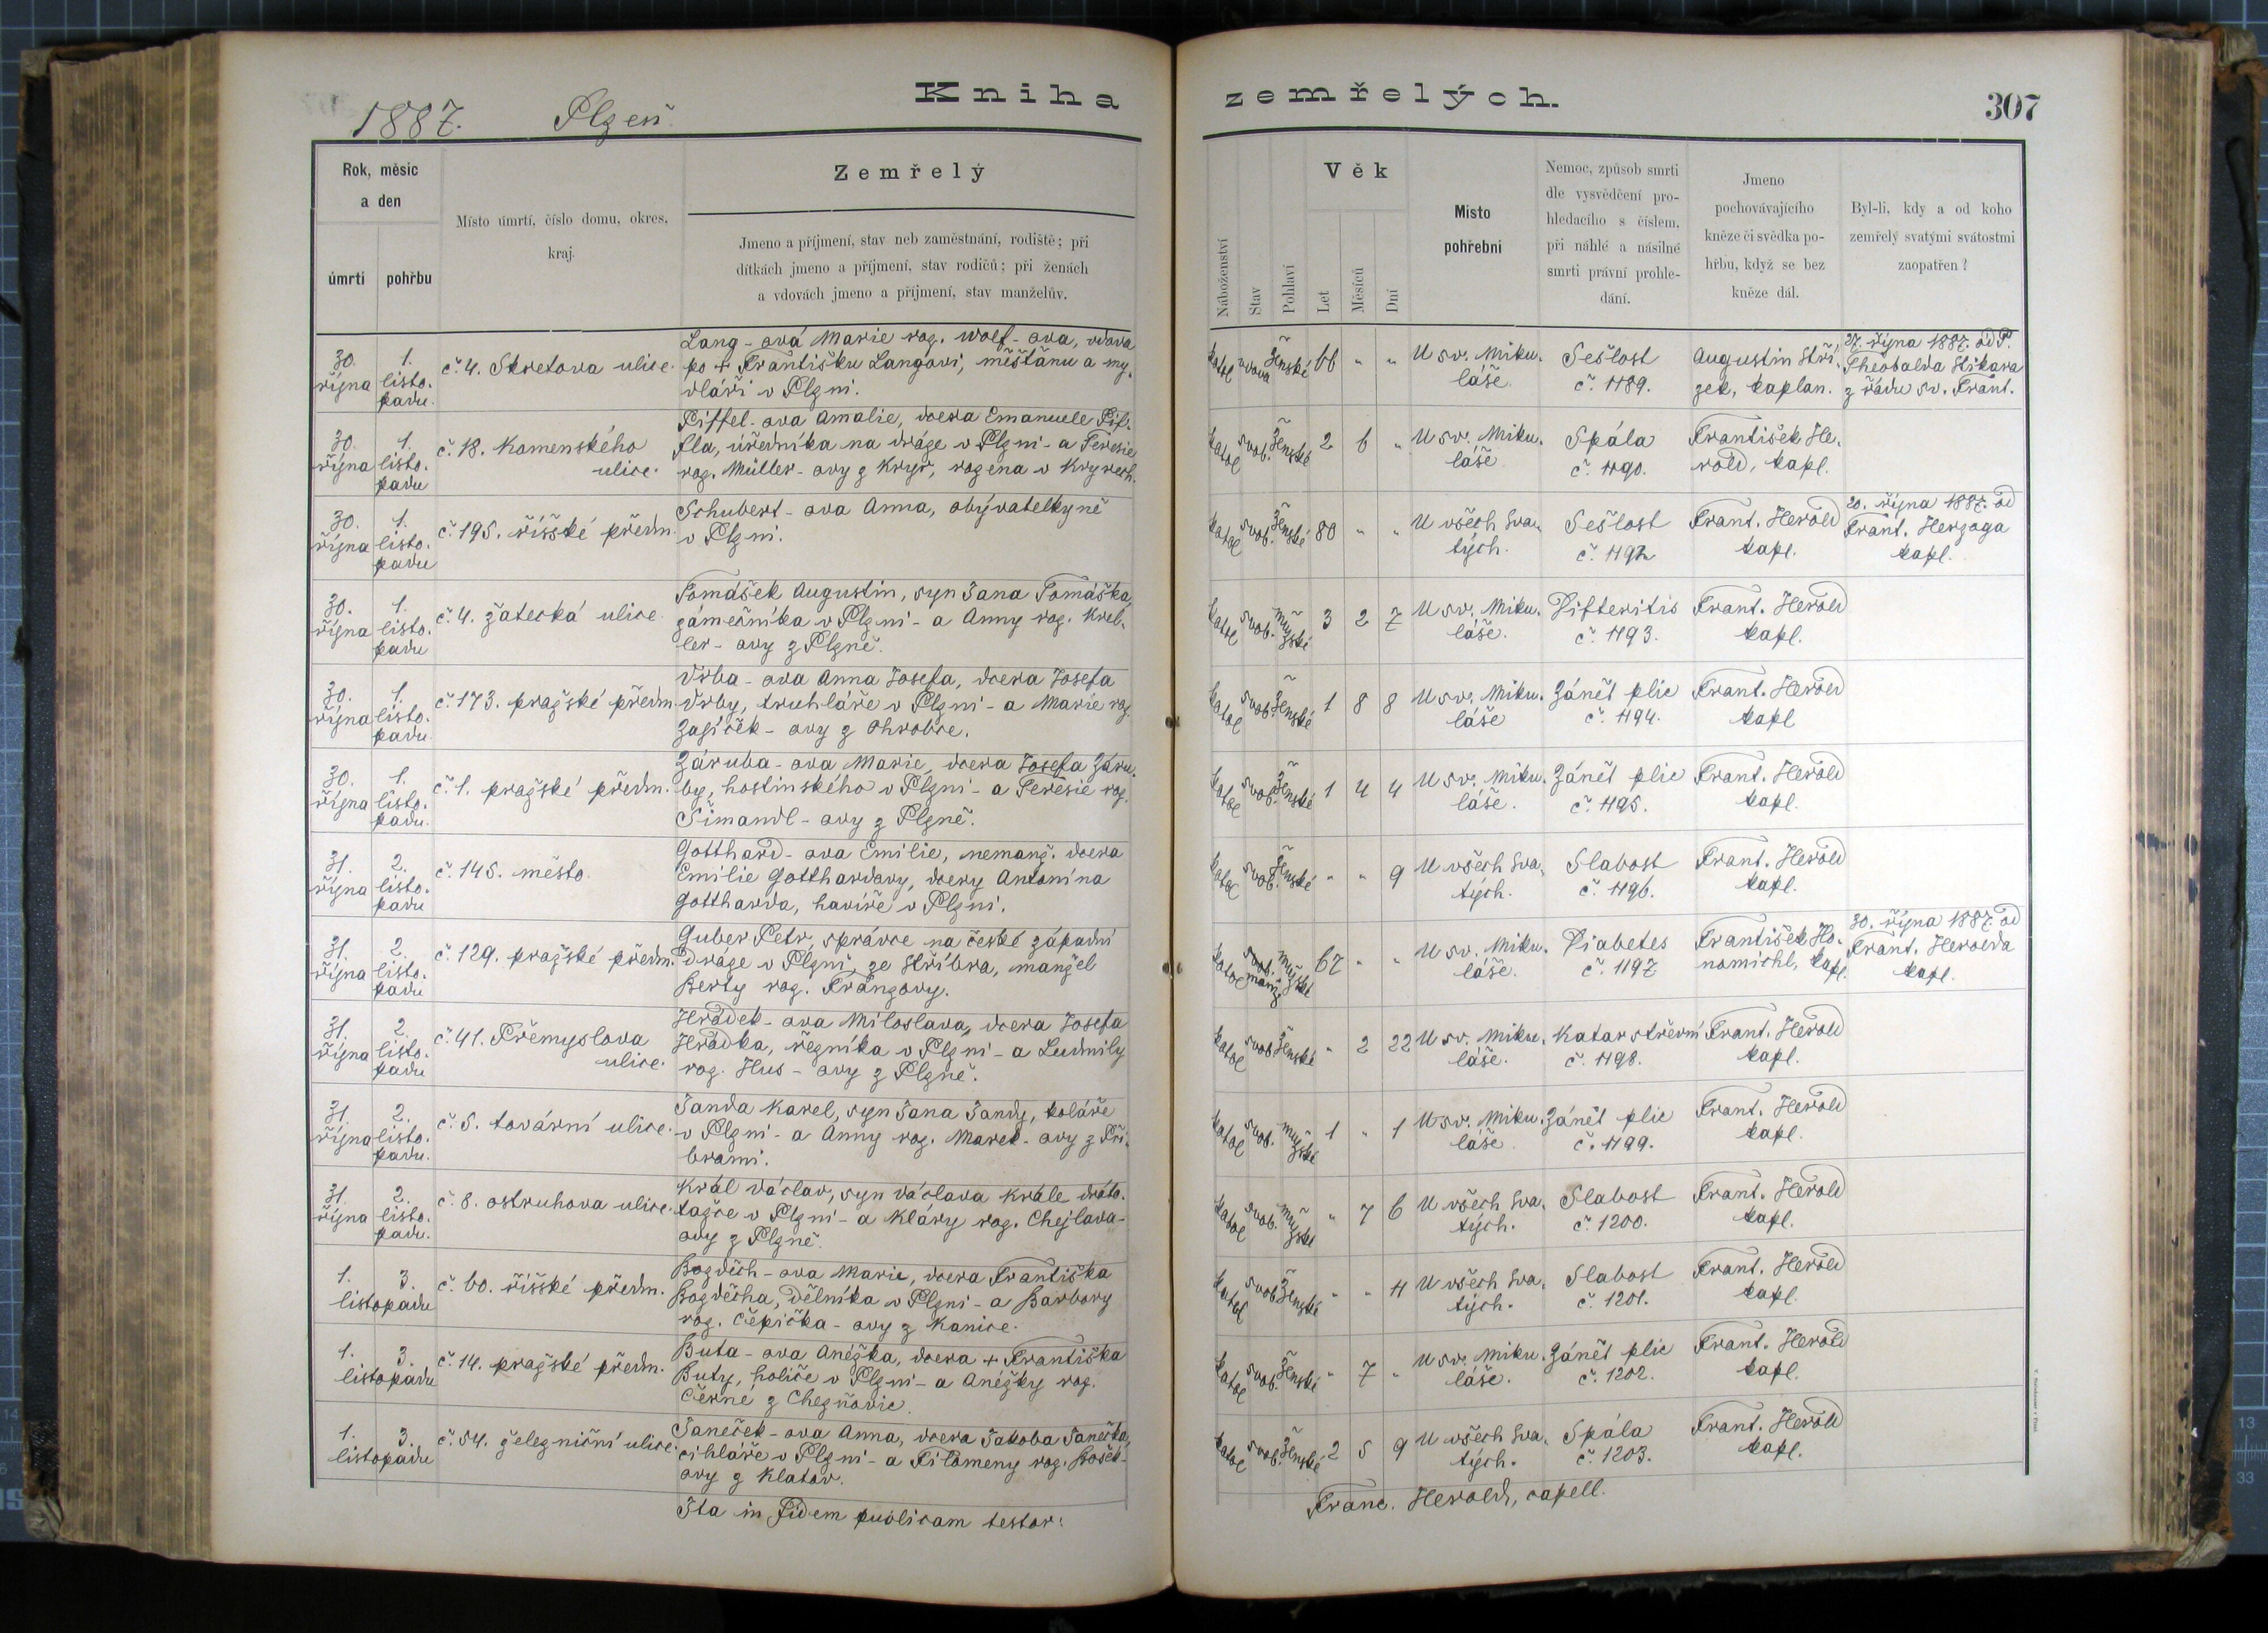 1887. Plzeň. Kniha zemřelých. 307
Rok, měsíc
a den
úmrtí pohřbu
Místo úmrtí, číslo domu, okres,
kraj.
Zemřelý
Jmeno a příjmení, stav neb zaměstnání, rodiště; při
dítkách jmeno a příjmení, stav rodičů; při ženách
a vdovách jmeno a příjmení, stav manželův.
Náboženství
Stav
Pohlaví
Věk
Let
Měsíců
Dní
Místo
pohřební
Nemoc, způsob smrti
dle vysvědčení pro-
hledacího s číslem,
při náhlé a násilné
smrti právní prohle-
dání.
Jmeno
pochovávajícího
kněze či svědka po-
hřbu, když se bez
kněze dál.
Byl-li, kdy a od koho
zemřelý svatými svátostmi
zaopatřen?
30.
října
1.
listo.
padu.
č. 4. Skretova ulice.
Lang-ová Marie roz. Wolf-ova, vdova
po + Františku Langovi, měšťanu a my.
dláři v Plzni.
katol vdova ženské 66 " "
U sv. Miku.
láše.
Sešlost
č. 1189.
Augustin Stří.
zek, kaplan.
27. října 1887. od P.
Theobalda
z řádu sv. Frant.
30.
října
1.
listo.
padu
č. 18. Komenského
ulice.
Piffel-ova Amalie, dcera Emanuele Pif.
fla, úředníka na dráze v Plzni-a Teresie
roz. Müller-ovy z Kryr, rozena v Kryrech.
katol svob. ženské 2 6 "
U sv. Miku.
láše
Spála
č. 1190.
František He.
rold, kapl.
30.
října
1.
listo.
padu
č. 195. říšské předm.
Schubert-ova Anna, obývatelkyně
v Plzni.
katol svob. ženské 80 " "
U všech Sva.
tých.
Sešlost
č. 1192
Frant. Herold
kapl.
20. října 1887. od
Frant. Herzoga
kapl.
30.
října
1.
listo.
padu
č. 4. žatecká ulice.
Tomášek Augustin, syn Jana Tomáška,
zámečníka v Plzni-a Anny roz. Krel.
ler-ovy z Plzně.
katol svob. mužské 3 2 7
U sv. Miku.
láše.
Difteritis
č. 1193.
Frant. Herold
kapl.
30.
října
1.
listo.
padu.
č. 173. pražské předm.
Vrba-ova Anna Josefa, dcera Josefa
Vrby, truhláře v Plzni-a Marie roz.
Zajíček-ovy z Ohrobce.
katol svob. ženské 1 8 8
U sv. Miku.
láše
Zánět plic
č. 1194.
Frant. Herold
kapl
30.
října
1.
listo.
padu.
č. 1. pražské předm.
Záruba-ova Marie, dcera Josefa Záru.
by, hostinského v Plzni-a Teresie roz.
Šimandl-ovy z Plzně.
katol svob. ženské 1 4 4
U sv. Miku.
láše.
Zánět plic
č. 1195.
Frant. Herold
kapl.
31.
října
2.
listo.
padu
č. 145. město.
Gotthard-ova Emilie, nemanž. dcera
Emilie Gotthardovy, dcery Antonína
Gottharda, havíře v Plzni.
katol svob. ženské " " 9
U všech Sva.
tých.
Slabost
č. 1196.
Frant. Herold
kapl.
31.
října
2.
listo.
padu
č. 129. pražské předm.
Guber Petr, správce na české západní
dráze v Plzni, ze Stříbra, manžel
Berty roz. Franzovy.
katol svob. manž. mužské 67 " "
U sv. Miku.
láše.
Diabetes
č. 1197
František Ho.
namichl, kapl.
30. října 1887. od
Frant. Herolda
kapl.
31.
října
2.
listo.
padu
č. 41. Přemyslova
ulice.
Hrádek-ova Miloslava, dcera Josefa
Hrádka, řezníka v Plzni-a Ludmily
roz. Hus-ovy z Plzně.
katol svob. ženské " 2 22
U sv. Miku.
láše.
Katar střevní
č. 1198.
Frant. Herold
kapl.
31.
října
2.
listo.
padu.
č. 5. tovární ulice.
Janda Karel, syn Jana Jandy, koláře
v Plzni-a Anny roz. Marek-ovy z Pří.
brami.
katol svob. mužské 1 " 1
U sv. Miku.
láše
Zánět plic
č. 1199.
Frant. Herold
kapl.
31.
října
2.
listo.
padu.
č. 8. ostruhova ulice.
Král Václav, syn Václava Krále dráto.
tažce v Plzni-a Kláry roz. Chejlava-
ovy z Plzně.
katol svob. mužské " 7 6
U všech Sva.
tých.
Slabost
č. 1200.
Frant. Herold
kapl.
1. 3.
listopadu
č. 60. říšské předm.
Bozděch-ova Marie, dcera Františka
Bozděcha, dělníka v Plzni-a Barbory
roz. Čepička-ovy z Kanice.
katol svob. ženské " " 11
U všech Sva.
tých.
Slabost
č. 1201.
Frant. Herold
kapl.
1. 3.
listopadu
č. 14. pražské předm.
Buta-ova Anéžka, dcera + Františka
Buty, holiče v Plzni-a Anéžky roz.
Černé z Chezňovic.
katol svob. ženské " 7 "
U sv. Miku.
láše.
Zánět plic
č. 1202.
Frant. Herold
kapl.
1. 3.
listopadu
č. 54. železniční ulice.
Janeček-ova Anna, dcera Jakoba Janečka,
cihláře v Plzni-a Filomeny roz. Bošek-
ovy z Klatov.
katol svob. ženské 2 5 9
U všech Sva.
tých.
Spála
č. 1203.
Frant. Herold
kapl.
Ita in fidem publicam testor: Franc. Herold, capell.